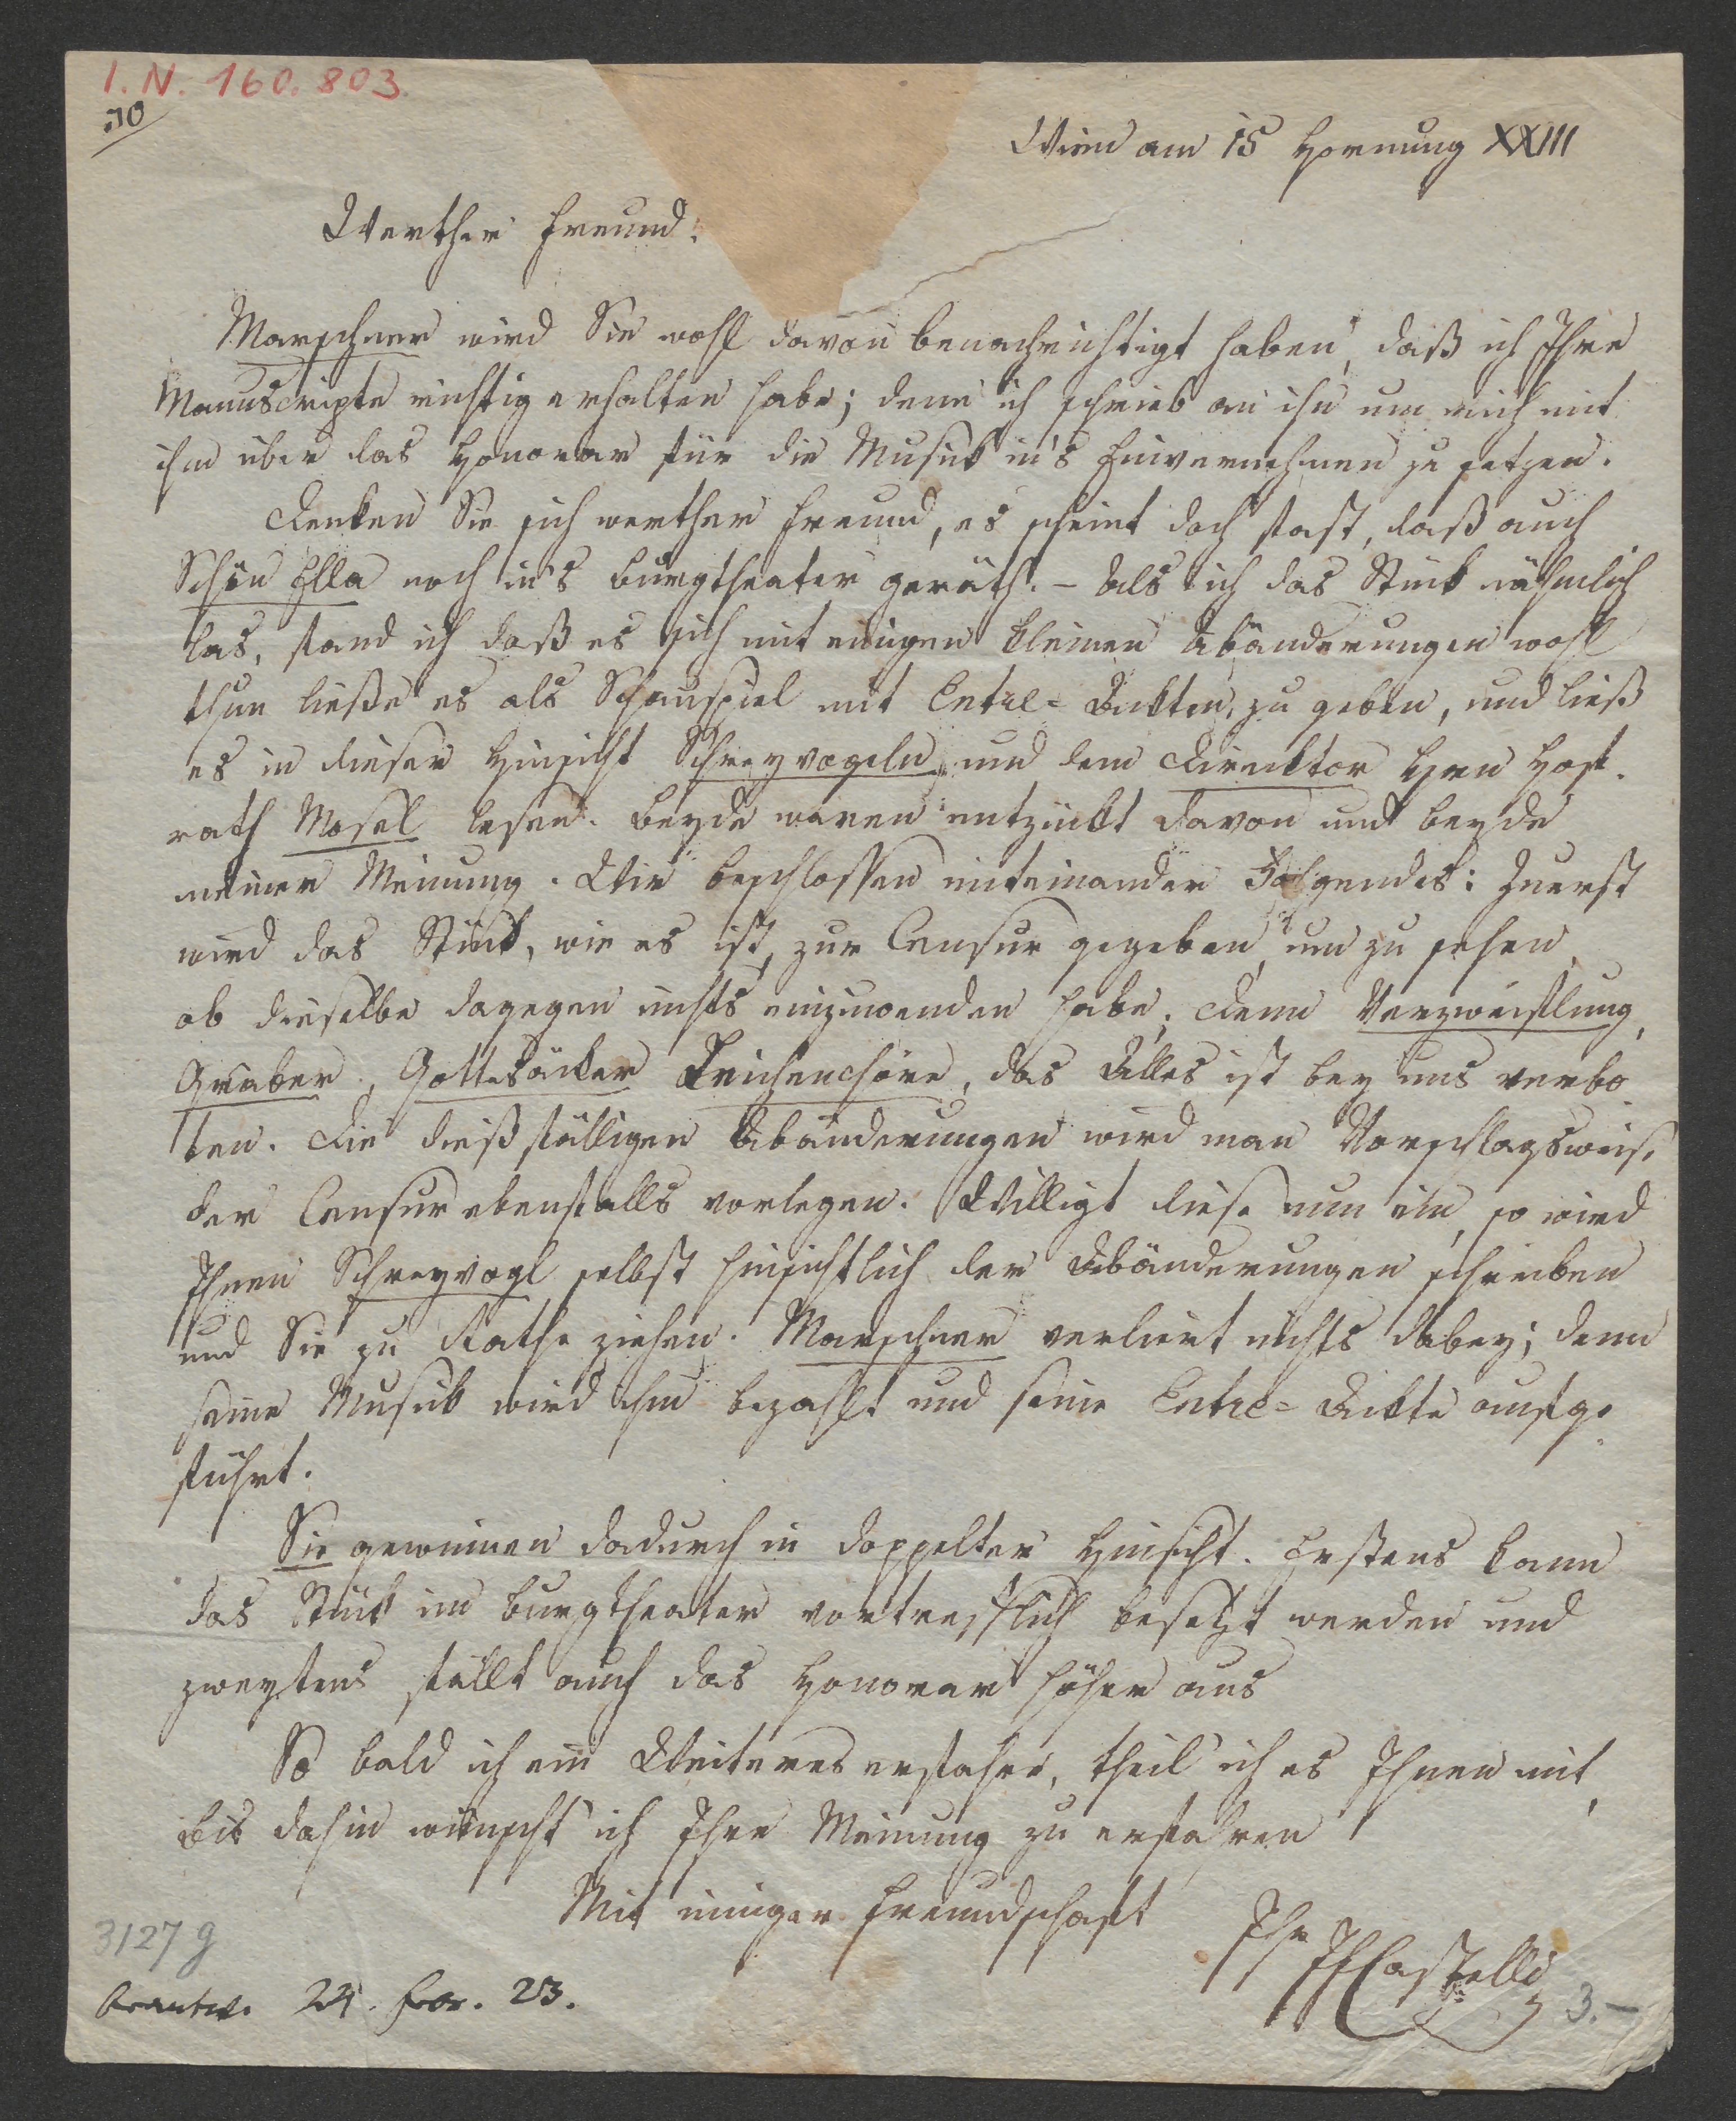 I. N. 160.803.
70
Wien am 15 Hornung XXIII
Werther Freund.
Marschner wird Sie wohl davon benachrichtigt haben, daß ich Ihre
Manuscripte richtig erhalten habe; denn ich schrieb an ihn um mich mit
ihm über das Honorar für die Musik in's Einvernehmen zu setzen.
Denken Sie sich werther Freund, es scheint doch fast, daß auch
Schön Ella noch in's Burgtheater geräth. – Als ich das Stück nähmlich
las, fand ich daß es sich mit einigen kleinen Abänderungen wohl
thun ließe es als Schauspiel mit Entre-Ackten, zu geben, und ließ
es in dieser Hinsicht Schreyvogeln und dem Direcktor Hrn Hof-
rath Mosel lesen. Beyde waren entzückt davon und beyde
meiner Meinung. Wir beschlossen miteinander Folgendes: Zuerst
wird das Stück, wie es ist, zur Censur gegeben, um zu sehen
ob dieselbe dagegen nichts einzuwenden habe; denn Verzweiflung,
Gräber, Gottesäcker Leichenchöre, das Alles ist bey uns verbo-
ten. Die dießfälligen Abänderungen wird man Vorschlagsweise
der Censur ebenfalls vorlegen. Willigt diese nun ein, so wird
Ihnen Schreyvogl selbst hinsichtlich der Abänderungen schreiben
und Sie zu Rathe ziehen. Marschner verliert nichts dabey; denn
seine Musik wird ihm bezahlt und seine Entre-Ackte aufge-
führt.
Sie gewinnen dadurch in doppelter Hinsicht. Erstens kann
das Stück im Burgtheater vortrefflich besetzt werden und
zweytens fällt auch das Honorar höher aus
So bald ich ein Weiteres erfahre, theil' ich es Ihnen mit,
bis dahin wünscht' ich Ihre Meinung zu erfahren
Mit inniger Freundschaft
Ihr
IFCastelli
3127 g
beantw. 24. Febr. 23.
3.–